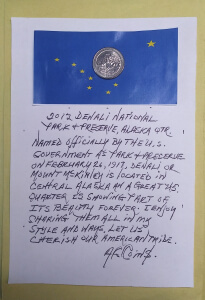 2012 DENALI NATIONAL
PARK & PRESERVE, ALASKA QTR.
NAMED OFFICIALLY BY THE U.S.
GOVERNMENT AS PARK & PRESERVE
ON FEBRUARY 26, 1917, DENALI OR
MOUNT MCKINLEY IS LOCATED IN
CENTRAL ALASKA AN A GREAT U.S.
QUARTER IS SHOWING PART OF
ITS BEAUTY FOREVER. I ENJOY
SHARING THEM ALL IN MY
STYLE AND WAYS, LET US
CHERISH OUR AMERICAN PRIDE.